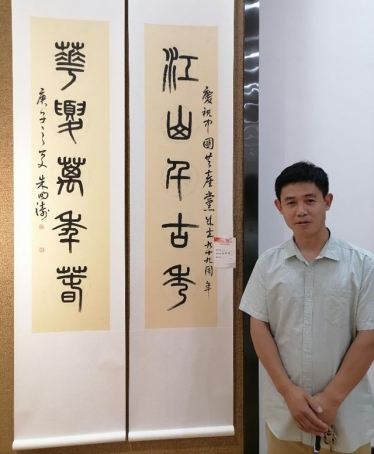 慶祝中國共產黨成立九十九周年
江山千古秀
華夏萬年春
庚子之夏 朱